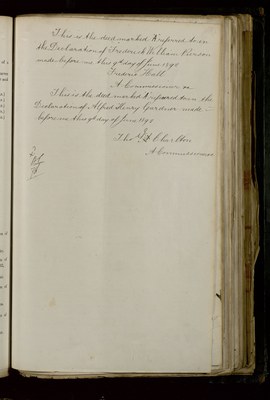 This is the deed marked A referred to in
the Declaration of Frederick William Pearson
made before me this 9th day of June 1890
Frederic Hall
A Commissioner &c
This is the deed marked A referred to in the
Declaration of Alfred Henry Gardner made
before me this 9th day of June 1890
Thos. Charlton
A Commissioner